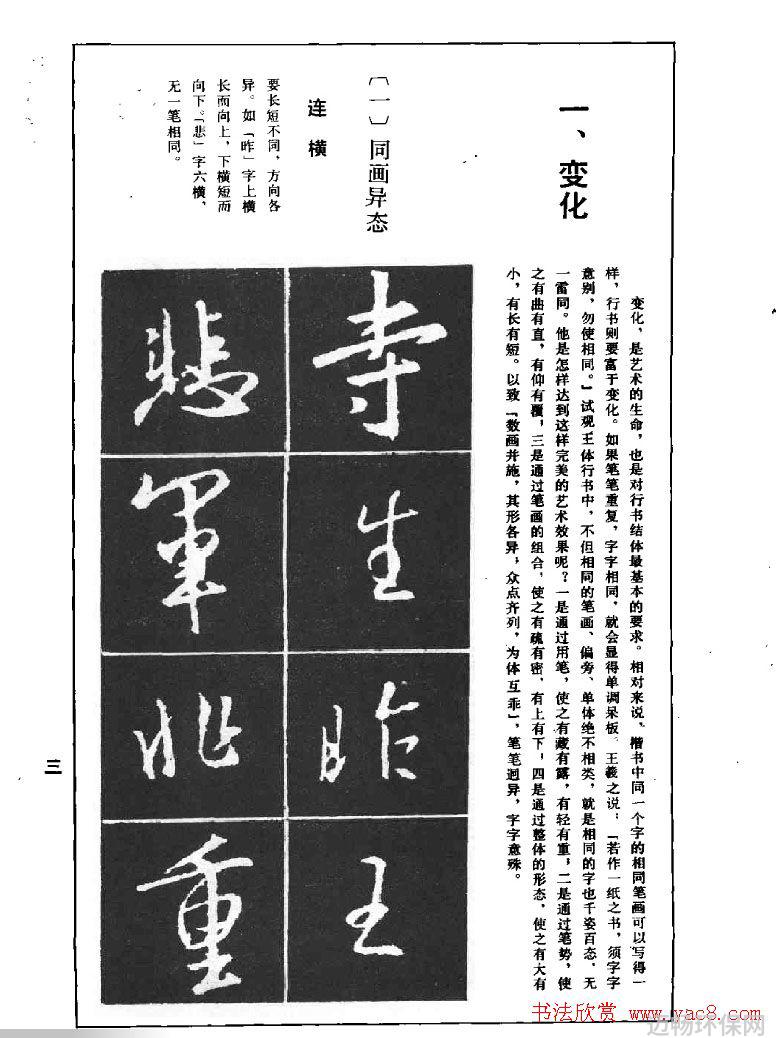 一、变化
变化，是艺术的生命，也是对行书结体最基本的要求。相对来说，楷书中同一个字的相同笔画可以写得一
样，行书则要富于变化。如果笔笔重复，字字相同，就会显得单调呆板。王羲之说：「若作一纸之书，须字字
意别，勿使相同。」试观王体行书中，不但相同的笔画、偏旁、单体绝不相类，就是相同的字也千姿百态，无
一雷同。他是怎样达到这样完美的艺术效果呢？一是通过用笔，使之有藏有露，有轻有重；二是通过笔势，使
之有曲有直，有仰有覆；三是通过笔画的组合，使之有疏有密，有上有下；四是通过整体的形态，使之有大有
小，有长有短。以致「数画并施，其形各异，众点齐列，为体互乖」，笔笔迥异，字字意殊。
〔一〕同画异态
连横
要长短不同，方向各
异。如「昨」字上横
长而向上，下横短而
向下。「悲」字六横，
无一笔相同。
寺
生
昨
王
悲
军
非
重
三
书法欣赏 www.yac8.com
迈畅环保网